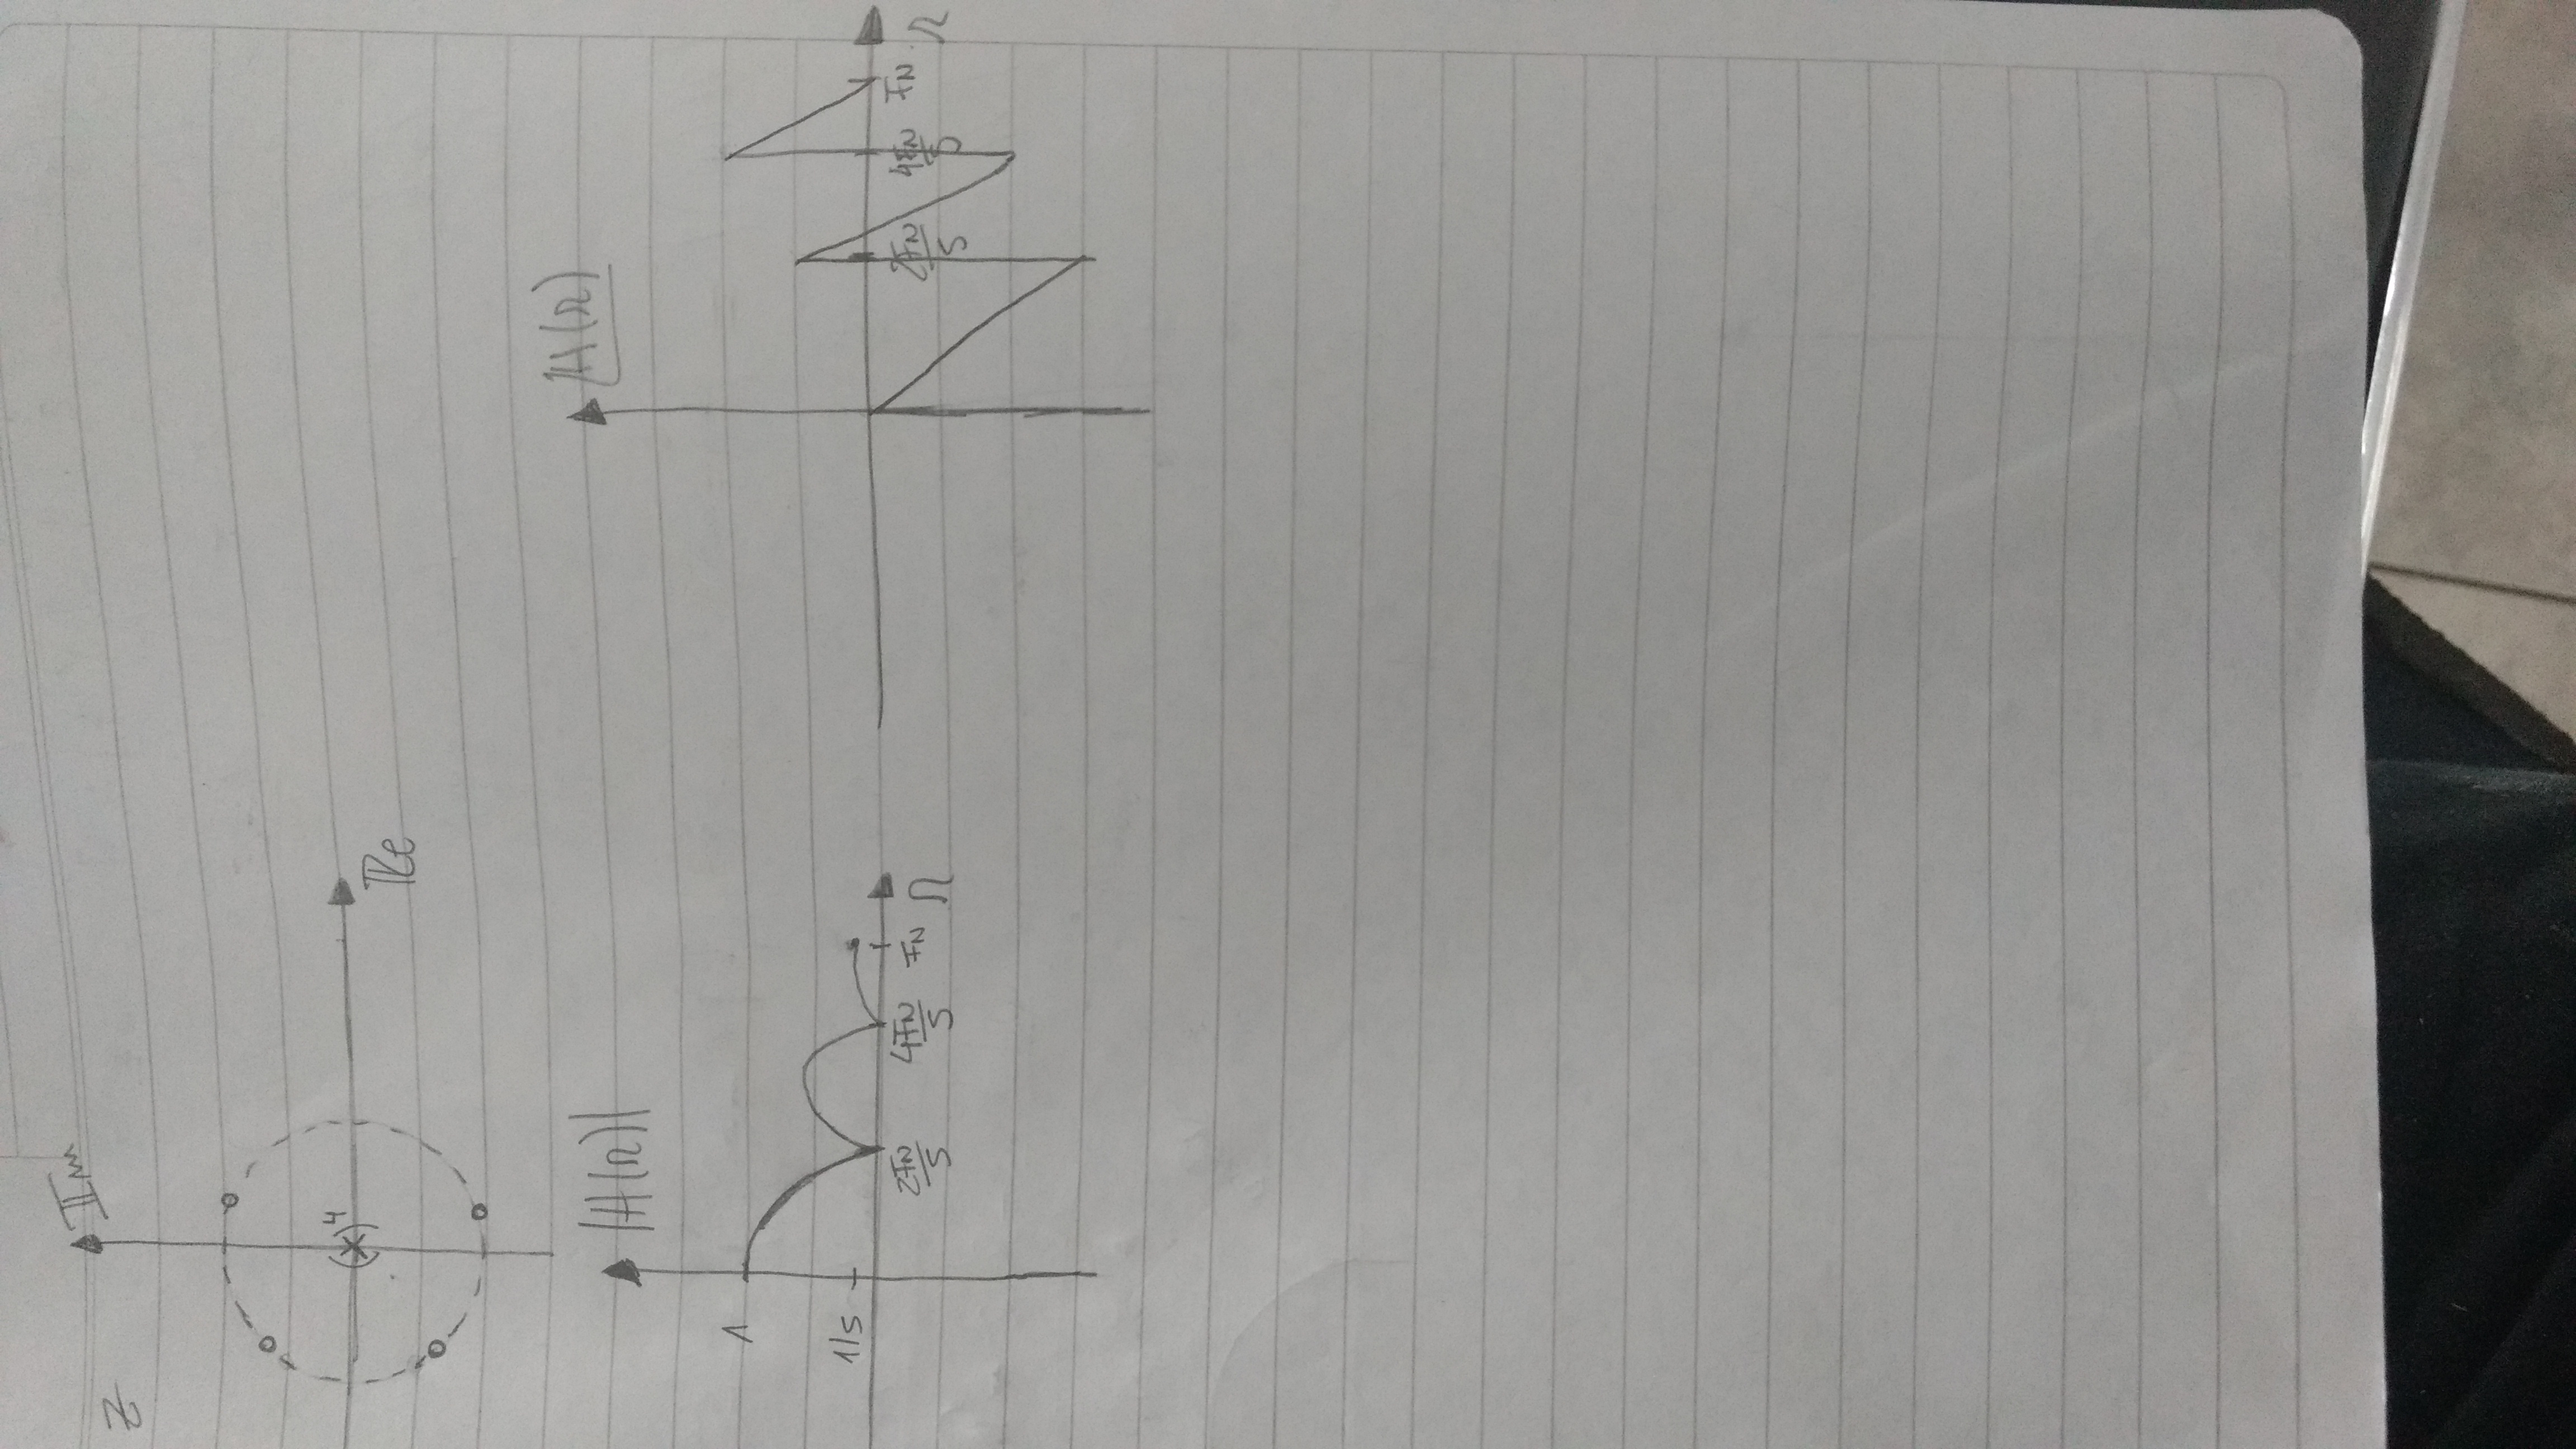 z
Im
(×)⁴
Re
|H(Ω)|
1
1/5
2π/5
4π/5
π
Ω
∠H(Ω)
2π/5
4π/5
π
Ω